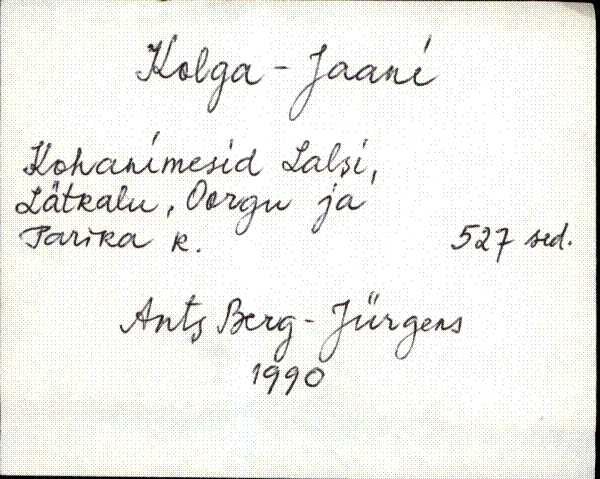 Kolga-Jaani
Kohanimesid Lalsi,
Lätkalu, Oorgu ja
Parika k. 527 sed.
Ants Berg-Jürgens
1990